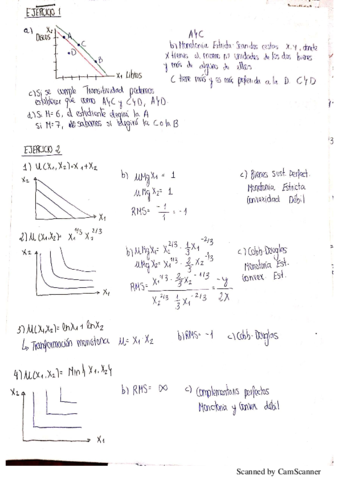 EJERCICIO 1
a)
X2
Discos
A
C
D
B
X1 Libros
A≰C
b) Monotonía Estricta: Sean dos cestas X, Y, donde
X tienen al menos las unidades de los dos bienes
y más de alguno de ellos
C tiene más y es más preferida a la D
c) Si se cumple Transitividad podemos
establecer que como
d) Si M=6, el estudiante elegirá la A
Si M=7, no sabemos si elegirá la C o la B
EJERCICIO 2
1) U(X1,X2)=X1+X2
X2
X1
b) UMgX1 = 1
UMgX2 = 1
RMS = -1/1 = -1
c) Bienes Sust. Perfect.
Monotonía Estricta
Convexidad Débil
2) U(X1,X2)= X1^1/3 X2^2/3
X2
X1
b) UMgX1= X2^2/3 · 1/3 X1^-2/3
UMgX2= X1^1/3 · 2/3 X2^-1/3
RMS=
-y
2X
c) Cobb-Douglas
Monotonía Est.
Convex Est.
3) U(X1,X2)= lnX1 + lnX2
↳ Transformación monótona U= X1 X2
b) RMS= -1
c) Cobb-Douglas
4) U(X1,X2)= Min{X1,X2}
X2
X1
b) RMS= ∞
c) Complementarios perfectos
Monotonía y Convex débil
Scanned by CamScanner